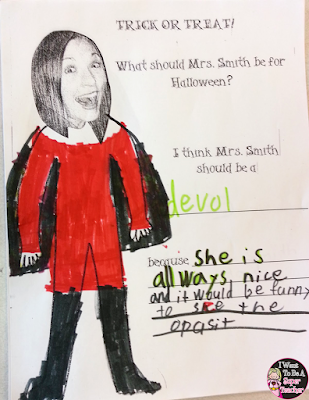 TRICK OR TREAT!
What should Mrs. Smith be for
Halloween?
I think Mrs. Smith
should be a
devol
because she is
allways nice
and it would be funny
to see the
opasit
I Want
To Be A
Super
Teacher